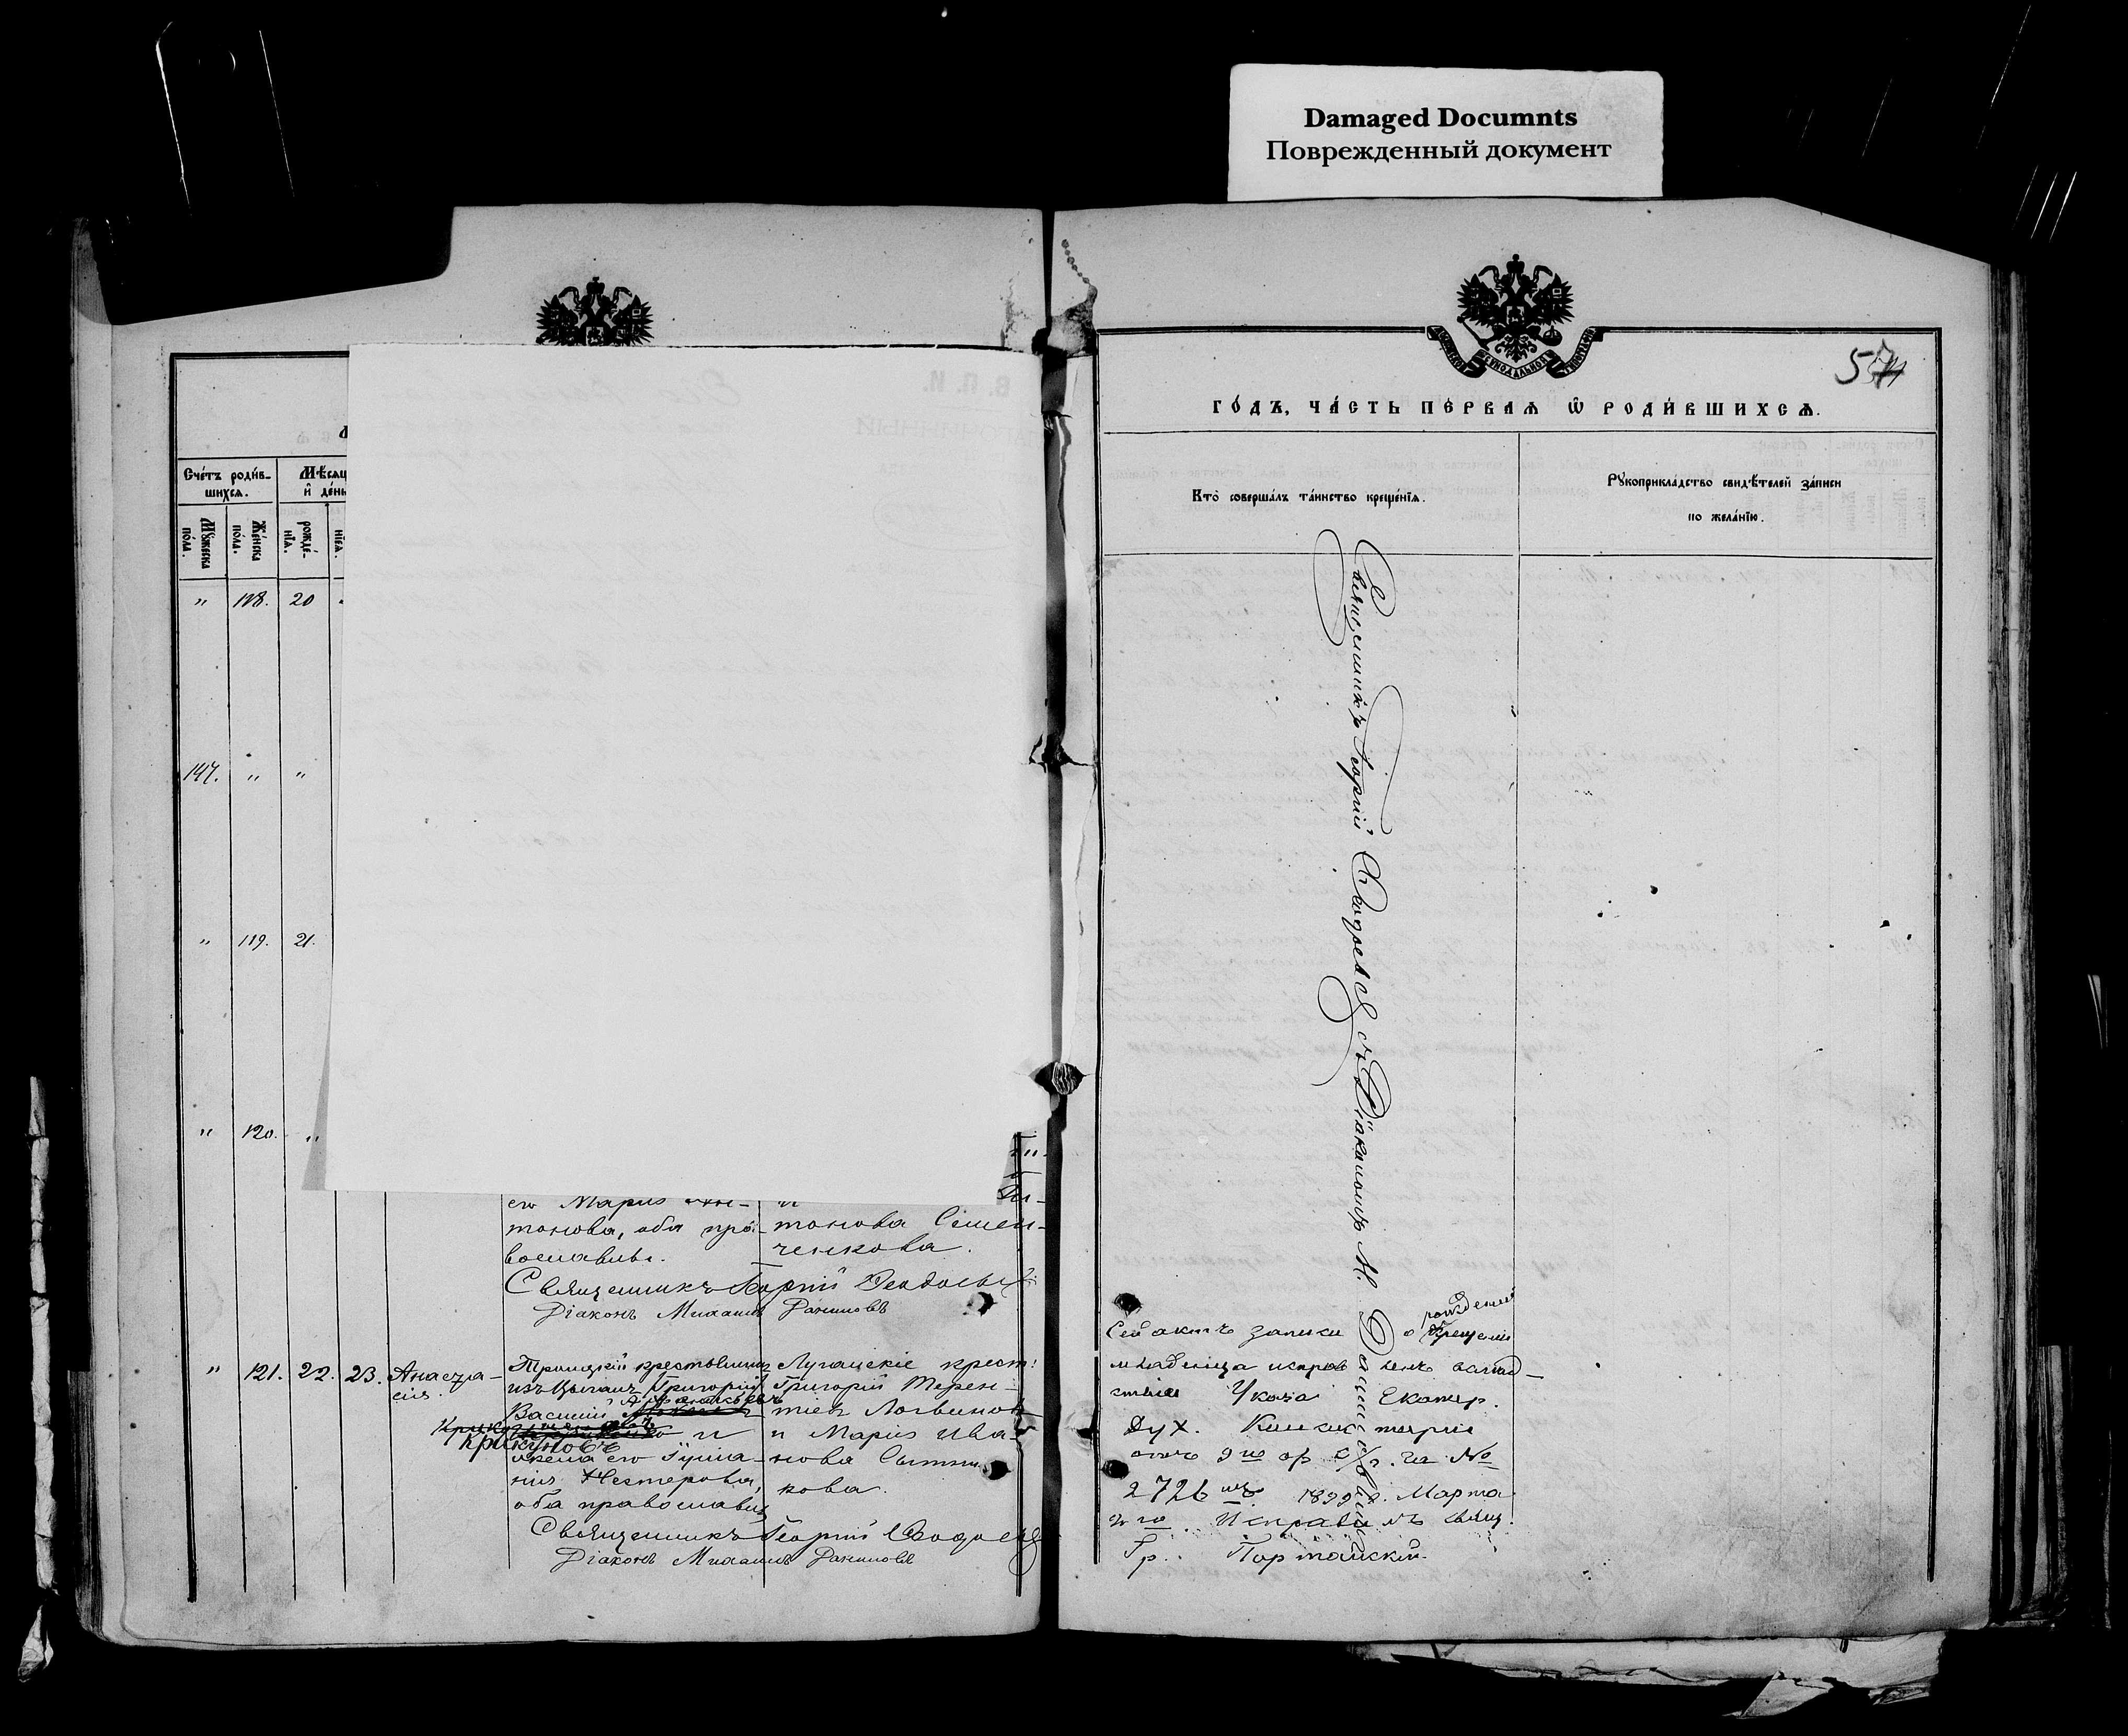 Damaged Documnts
Поврежденный документ
Счéтъ роди́в-
шихсѧ.
Мѣсѧц
и де́нь
Мꙋжеска
по́ла.
Же́нска
по́ла.
рожде́-
нїѧ.
нїѧ.
" 118. 20
147. " "
" 119. 21.
" 120. "
его Марія Ан-
тонова, оба пра-
вославны.
тонова Семен-
ченкова.
Священникъ Георгій Ѳеодосьевъ
Діаконъ Михаилъ Даниловъ
" 121. 22. 23. Анаста-
сія.
Троицкій крестьянинъ
изъ Цыганъ Григорій
Василій
Крикуновъ
и
жена его Іуліа-
нія Нестерова,
оба православны
Луганскіе крест:
Григорій Терен-
тіев Логвинов
и Марія Ива-
нова Сытни-
кова.
Священникъ Георгій Ѳеодосьевъ
Діаконъ Михаилъ Даниловъ
57
го́дъ, ча́сть пе́рваѧ ѡ҆ роди́вшихсѧ.
Кто̀ соверша́лъ та́инство креще́нїѧ.
Рꙋкоприкла́дство свидѣ́телей за́писи
по жела́нїю.
Священникъ Георгій Ѳеодосьевъ съ Діакономъ М. Даниловымъ
Сей актъ записи о рожденіи
младенца исправленъ вслѣд-
ствіе Указа Екатер.
Дух. Консисторіи
отъ 9го за №
2726мъ 1899 г. Марта
Исправилъ свящ.
Гр. Портанскій.